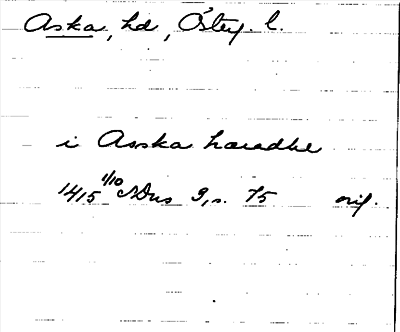 Aska, hd, Österg. l.
i Asska haradhe
1415 1/10 SDns 3, s. 75 orig.